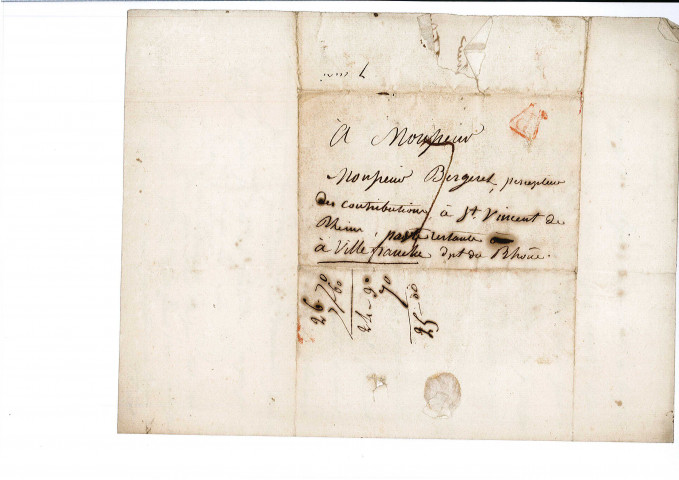 7 mai
À Monsieur
Monsieur Bergeret, percepteur
des contributions, à St. Vincent de
Rheins, poste restante
à Villefranche dpt du Rhône.
26-70
24-90
70
25-60